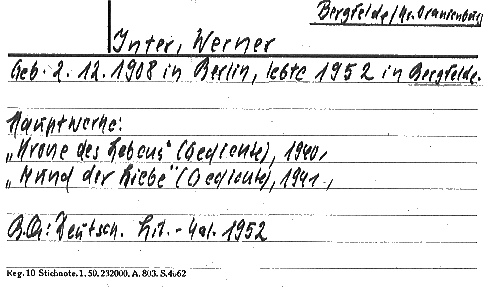 Bergfelde/Kr. Oranienburg
Inter, Werner
Geb. 2. 12. 1908 in Berlin, lebte 1952 in Bergfelde.
Hauptwerke:
„Krone des Lebens" (Gedichte), 1940,
„Mund der Liebe" (Gedichte), 1941,
B.Q.: Deutsch. Lit.-Kal. 1952
Reg. 10 Stichnote. 1. 50. 232000. A. 803. S. 4062